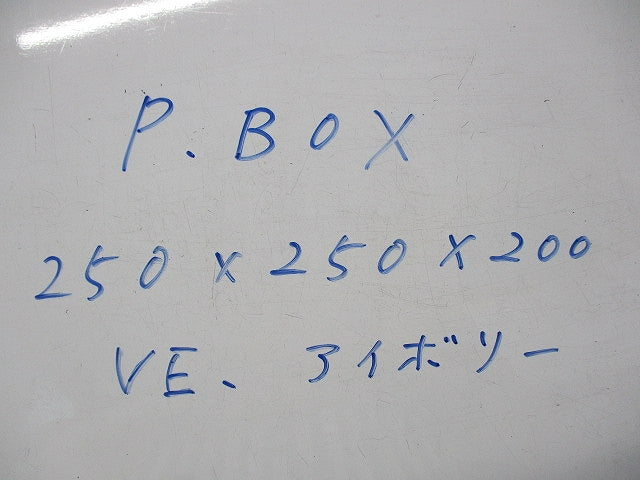 P.BOX
250×250×200
VE、アイボリー